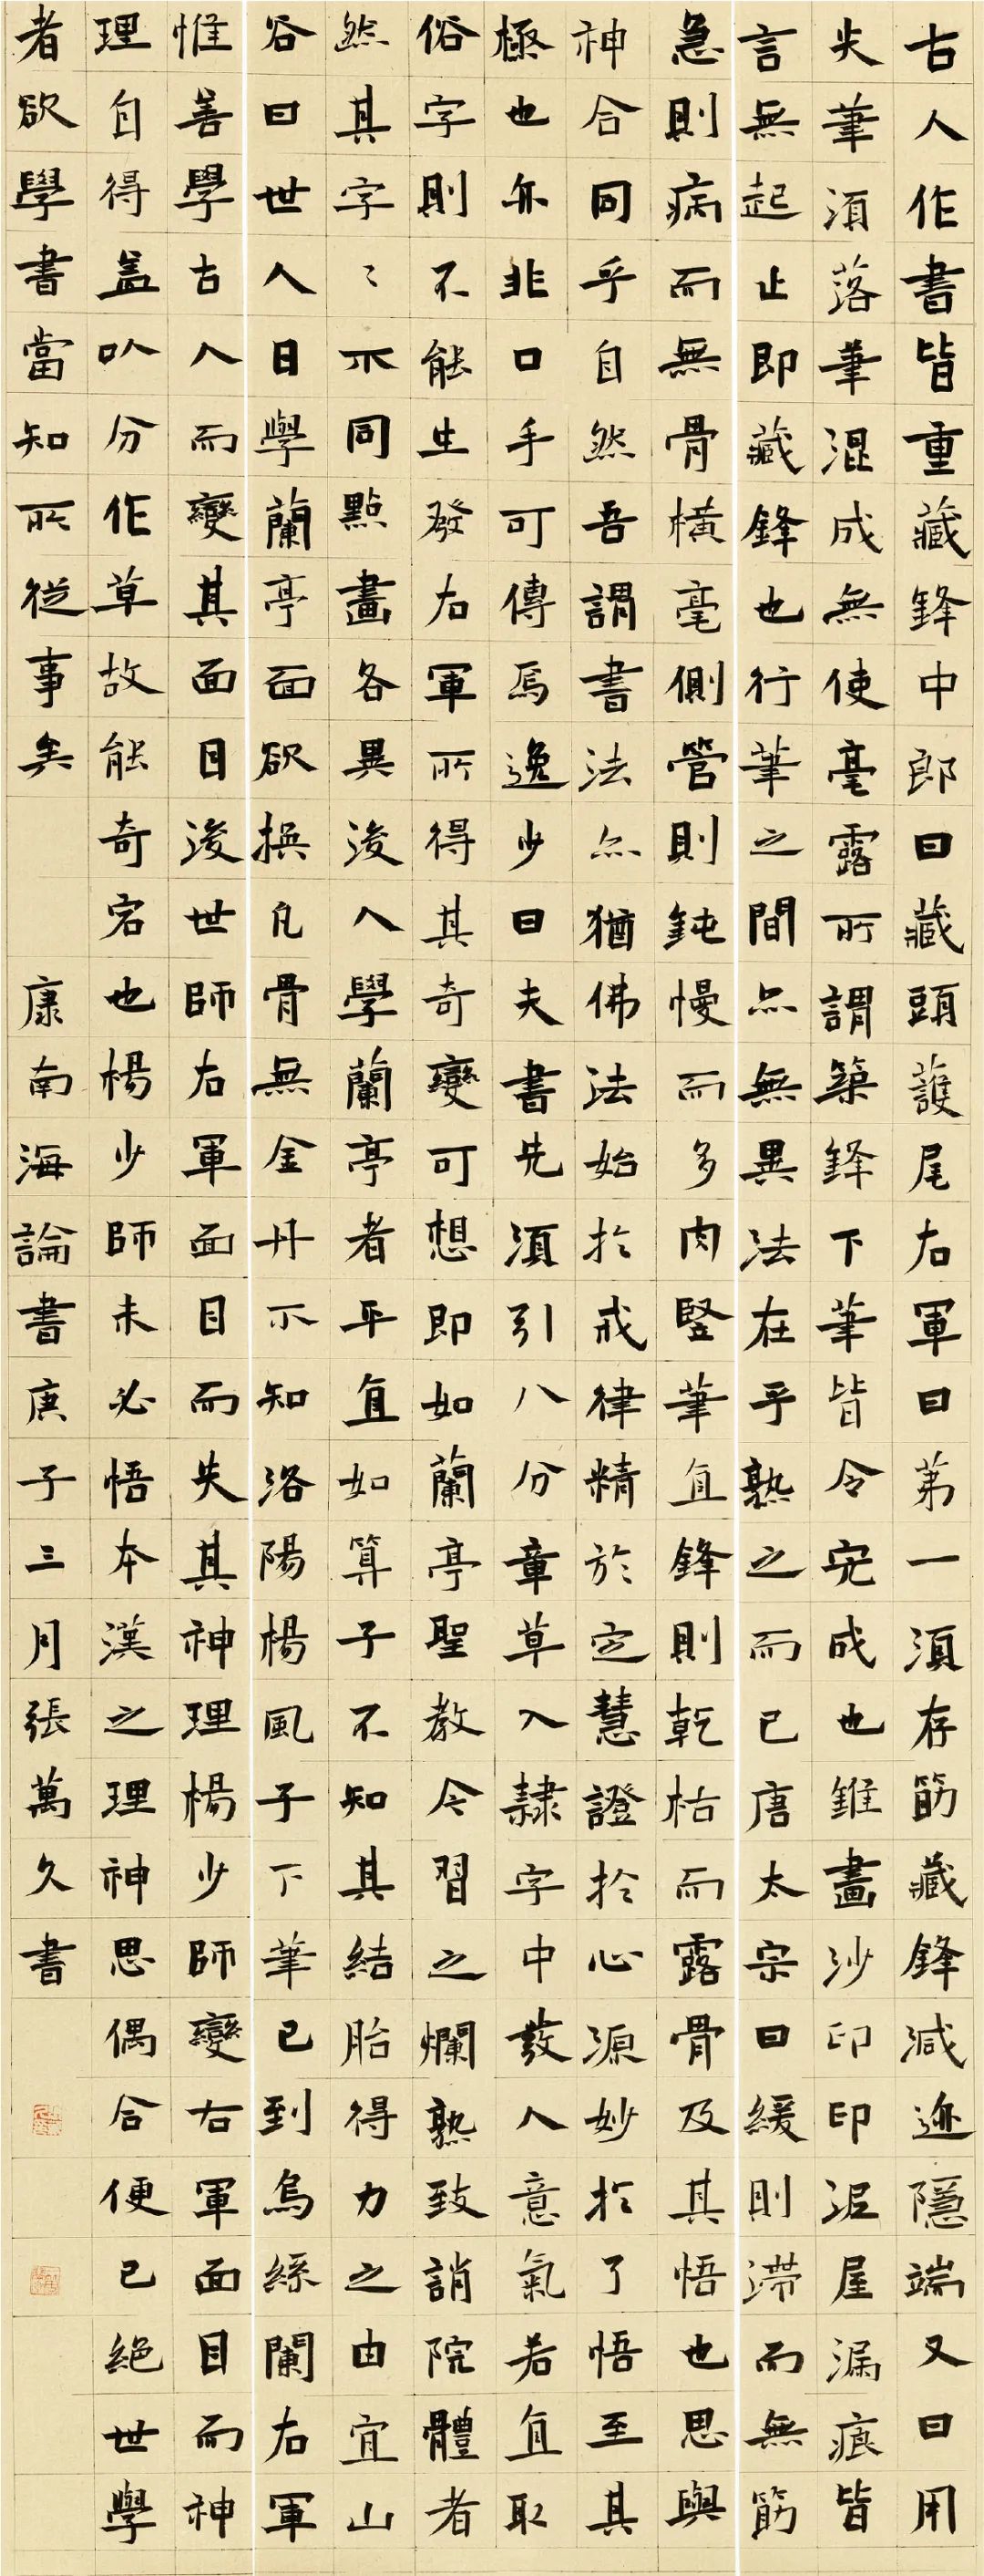 古人作書皆重藏鋒中郎曰藏頭護尾右軍曰第一須存筋藏鋒減迹隱端又曰用
尖筆須落筆混成無使毫露所謂築鋒下筆皆令完成也錐畫沙印印泥屋漏痕皆
言無起止即藏鋒也行筆之間亦無異法在乎熟之而已唐太宗曰緩則滯而無筋
急則病而無骨橫毫側管則鈍慢而多肉豎筆直鋒則乾枯而露骨及其悟也思與
神合同乎自然吾謂書法亦猶佛法始於戒律精於定慧證於心源妙於了悟至其
極也亦非口手可傳焉逸少曰夫書先須引八分章草入隸字中發人意氣若直取
俗字則不能生發右軍所得其奇變可想即如蘭亭聖教今習之爛熟致誚院體者
然其字〻不同點畫各異後人學蘭亭者平直如算子不知其結胎得力之由宜山
谷曰世人日學蘭亭面欲換凡骨無金丹不知洛陽楊風子下筆已到烏絲闌右軍
惟善學古人而變其面目後世師右軍面目而失其神理楊少師變右軍面目而神
理自得盖以分作草故能奇宕也楊少師未必悟本漢之理神思偶合便已絕世學
者欲學書當知所從事矣 康南海論書庚子三月張萬久書